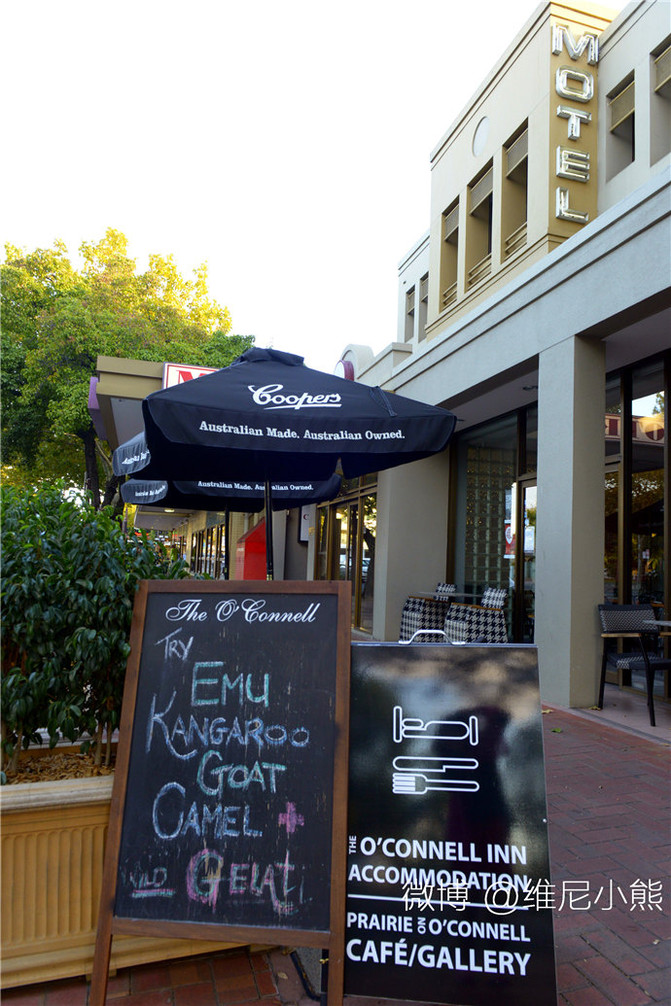 MOTEL
Coopers
Australian Made. Australian Owned.
Australian Made. Australian Owned.
The O'Connell
TRY
EMU
KANGAROO
GOAT
CAMEL +
WILD GELATI
THE O'CONNELL INN
ACCOMMODATION
PRAIRIE ON O'CONNELL
CAFÉ/GALLERY
微博 @维尼小熊